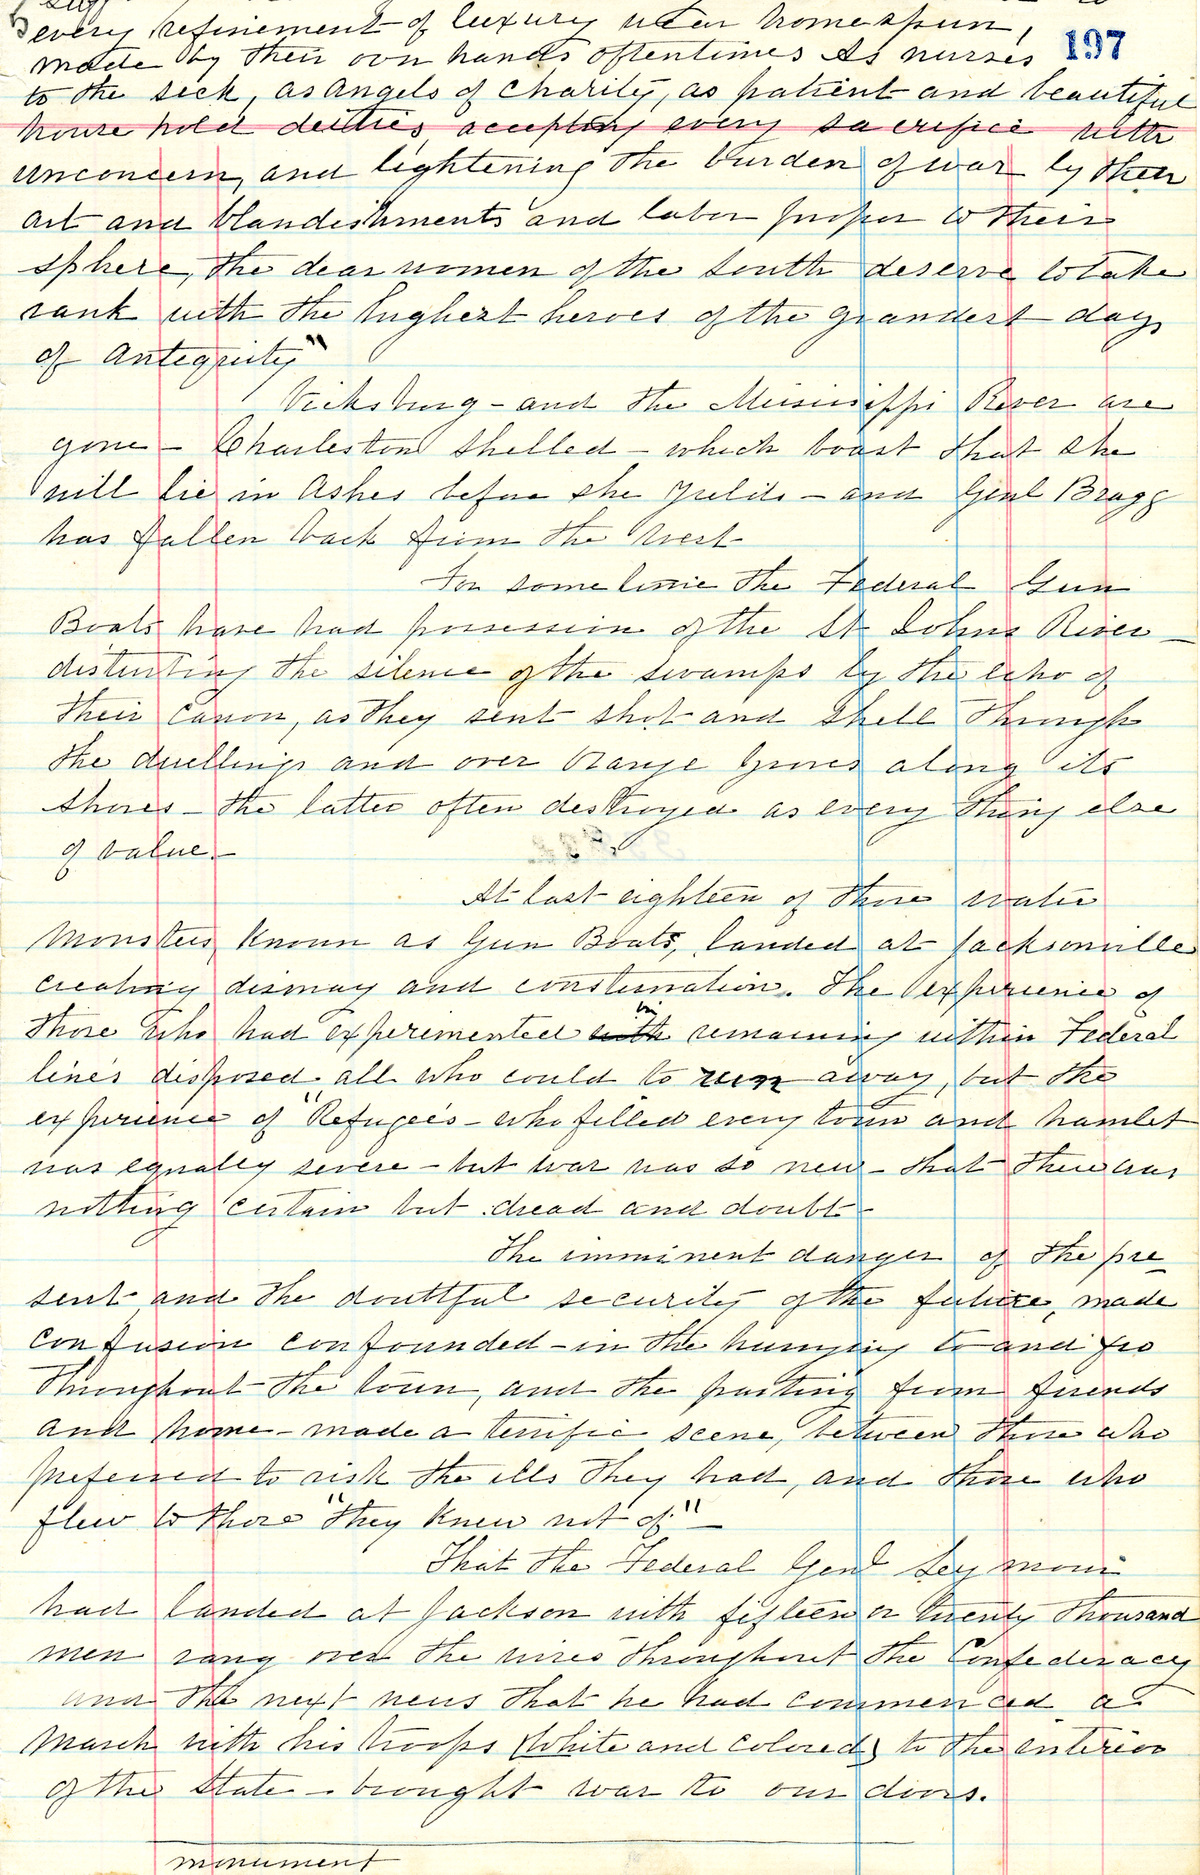 every refinement of luxury wear homespun,
197
made by their own hands oftentimes As nurses
to the sick, as angels of charity, as patient and beautiful
house hold deities accepting every sacrifice with
unconcern, and lightening the burden of war by their
art and blandishments and labor proper to their
sphere, the dear women of the South deserve to take
rank with the highest heroes of the grandest days
of Antequity"
Vicksburg - and the Mississippi River are
gone - Charleston shelled - which boast that she
will lie in Ashes before she yields - and Genl Bragg
has fallen back from the West
For some time the Federal Gun
Boats have had possession of the St Johns River -
disturbing the silence of the swamps by the echo of
their canon, as they sent shot and shell through
the dwellings and over Orange Groves along its
shores - the latter often destroyed as every thing else
of value. -
At last eighteen of those water
Monsters known as Gun Boats, landed at Jacksonville
creating dismay and consternation. The experience of
in
those who had experimented with remaining within Federal
lines disposed all who could to run away, but the
experience of "Refugees - who filled every town and hamlet
was equally severe - but war was so new - that there was
nothing certain but dread and doubt -
The imminent danger of the pre
sent and the doubtful security of the future, made
confusion confounded - in the hurrying to and fro
throughout the town, and the parting from friends
and home - made a terrific scene, between those who
preferred to risk the ills they had, and those who
flew to those "they knew not of" -
That the Federal Genl Seymour
had landed at Jackson with fifteen or twenty thousand
men rang over the wires throughout the Confederacy
and the next news that he had commenced a
March with his troops (White and colored) to the interior
of the State - brought war to our doors.
monument